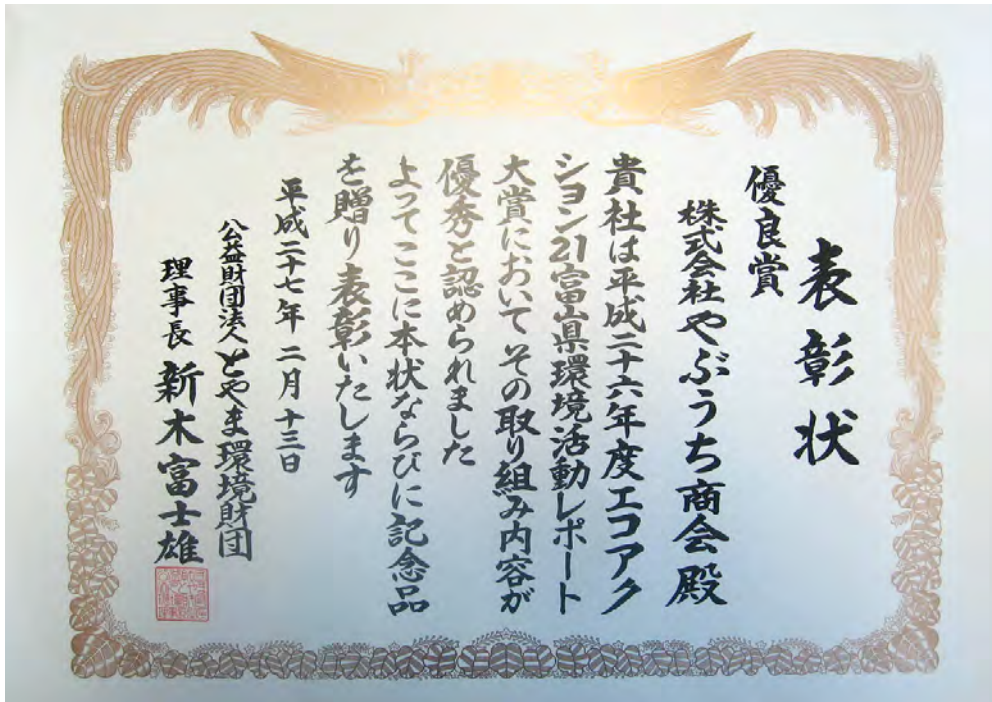 表彰状
優良賞
株式会社やぶうち商会殿
貴社は平成二十六年度エコアク
ション21富山県環境活動レポート
大賞においてその取り組み内容が
優秀と認められました
よってここに本状ならびに記念品
を贈り表彰いたします
平成二十七年 二月 十三日
公益財団法人とやま環境財団
理事長 新木富士雄